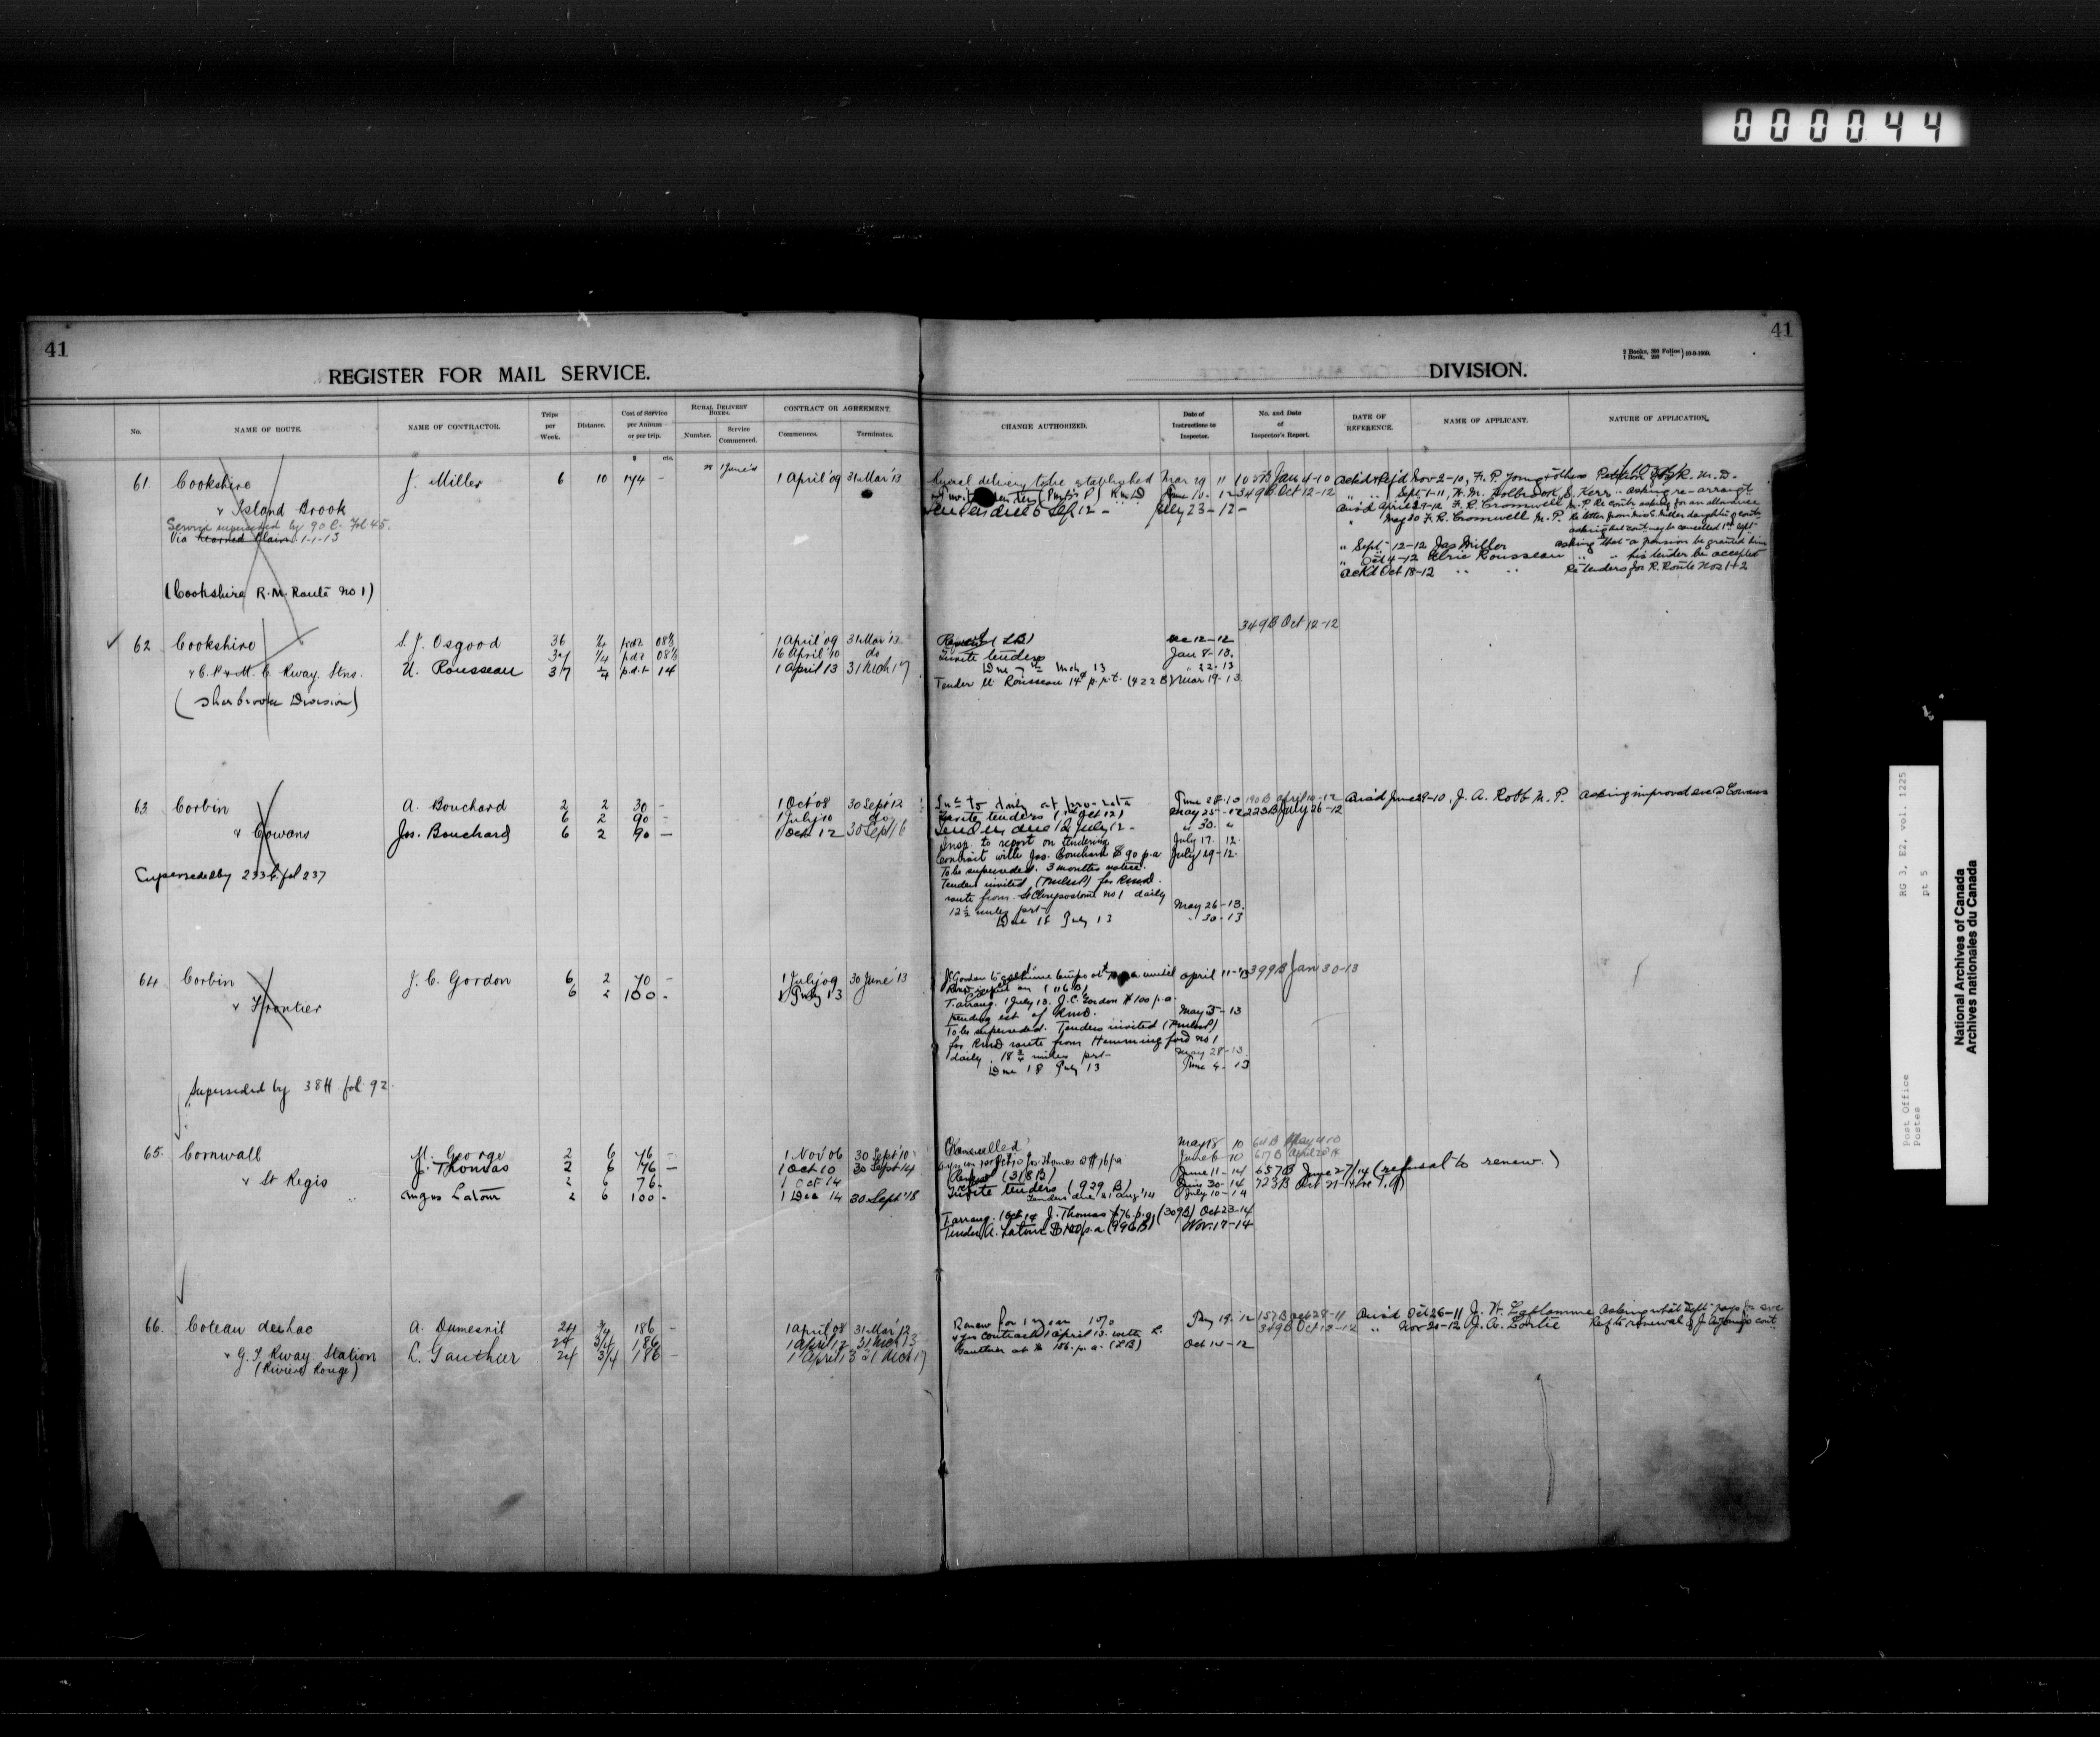 000044
41
41
REGISTER FOR MAIL SERVICE.
DIVISION.
2 Books, 300 Folios
1 Book, 250 "
10-9-1909.
No.
NAME OF ROUTE.
NAME OF CONTRACTOR.
Trips per Week.
Distance.
Cost of Service per Annum or per trip.
$ cts.
RURAL DELIVERY BOXES.
Number.
Service Commenced.
CONTRACT OR AGREEMENT.
Commences.
Terminates.
CHANGE AUTHORIZED.
Date of Instructions to Inspector.
No. and Date of Inspector's Report.
DATE OF REFERENCE.
NAME OF APPLICANT.
NATURE OF APPLICATION.
61. Cookshire J. Miller 6 10 174 - 1 April '09 31 Mar '13
& Island Brook
Service superseded by 90 C. Fol 45.
Via Learned Plain 1-1-13
(Cookshire R.M. Route No 1)
Rural delivery to be established Mar 29 11 105B Jan 4-10
June 10-12 349B Oct 12-12
Tenders due 6 Sep 12 - July 23-12-
Ack'd & Ref'd Nov-2-10, H. P. Young & others Petition for R. M. D.
Sept-1-11, H. M. Holbrook, S. Kerr - asking re-arrangt
Ans'd April 29-12 F. R. Cromwell M.P. Re contr. asking for an allowance
" May 30 F. R. Cromwell M.P. Re letter from Miss Miller daughter of contr.
asking that cont. may be cancelled 1st Sept-
" Sept- 12-12 Jas Miller asking that a pension be granted him
" Oct 4-12 Ulric Rousseau " " his tender be accepted
Ack'd Oct 18-12 " " Re tenders for R. Route Nos 1 & 2
62 Cookshire S. J. Osgood 36 p.d.t. 08½ 1 April '09 31 Mar '13
37 1/4 p.d.t. 08½ 16 April '10 do
& C.P. & M.C. Rway. Stns. U. Rousseau 37 1/4 p.d.t. 14 1 April 13 31 Mch 17
(Sherbrooke Division)
349B Oct 12-12
Report (LB) Dec 12-12
Invite tenders Jan 8-13.
Due 7th Mch 13 " 22-13
Tender U. Rousseau 14¢ p.r.t. (422B) Mar 19-13.
63. Corbin A. Bouchard 2 2 30 - 1 Oct '08 30 Sept '12
6 2 90 - 1 July '10 do
& Cowans Jos. Bouchard 6 2 90 - 1 Oct 12 30 Sept 16
Superseded by 233 fol 237
Inc. to daily at pro-rata June 28-10 190B April 10-12
Invite tenders (1st Oct 12) May 25-12 223B July 26-12
Tenders due 12 July 12 - " 30. "
Insp. to report on tendering July 17. 12.
Contract with Jos. Bouchard $90 p.a July 29-12.
To be superseded. 3 months notice.
Tenders invited for RMD.
route from St Chrysostome No 1 daily
12½ miles prt- May 26-13.
Due 18 July 13 " 30-13
Ans'd June 29-10, J. A. Robb M.P. Asking improved svce @ Cowans
64. Corbin J. C. Gordon 6 2 70 - 1 July '09 30 June '13
6 2 100 - 1 July 13
& Frontier
Superseded by 38 H fol 92.
April 11-13 399B Jan 30-13
T. arrang. 1 July 13. J. C. Gordon $100 p.a.
pending est of RMD. May 5-13
To be superseded. Tenders invited
for RMD route from Hemmingford No 1
daily. 18 3/4 miles prt- May 28-13.
Due 18 July 13 June 4-13
65. Cornwall M. George 2 6 76 - 1 Nov 06 30 Sept '10
J. Thomas 2 6 76 - 1 Oct 10 30 Sept 14
& St Regis 2 6 76 - 1 Oct 14
Angus Latour 2 6 100 - 1 Dec 14 30 Sept '18
Cancelled May 18 10 64B May 4 10
June 6-10 617B April 20 14
June 11-14 657B June 27/14 (refusal to renew.)
Renewal (318B) June 30-14 723B Oct 21-14
Invite tenders (929B) July 10-14
Tenders due 21 Aug '14
T. arrang. 1 Oct 14 J. Thomas $76 p.a. (309B) Oct 23-14
Tender A. Latour $100 p.a (996B) Nov. 17-14
66. Coteau du Lac A. Dumesnil 24 3/4 186 - 1 April '08 31 Mar '12
24 3/4 186 - 1 April '12 31 Mch 13
& G.T. Rway. Station L. Gauthier 24 3/4 186 - 1 April 13 31 Mch 17
(Riviere Rouge)
Renew for 1 year 157B Oct 28-11
4 yrs contract 1 April 13. with L. 349B Oct 12-12
Gauthier at $186. p.a. (LB) Oct 14-12
Ans'd Oct 26-11 J. H. Laflamme Asking what Dept- pays for svce
" Nov 20-12 J. A. Lortie
Post Office
Postes
RG 3, E2, vol. 1225
pt 5
National Archives of Canada
Archives nationales du Canada